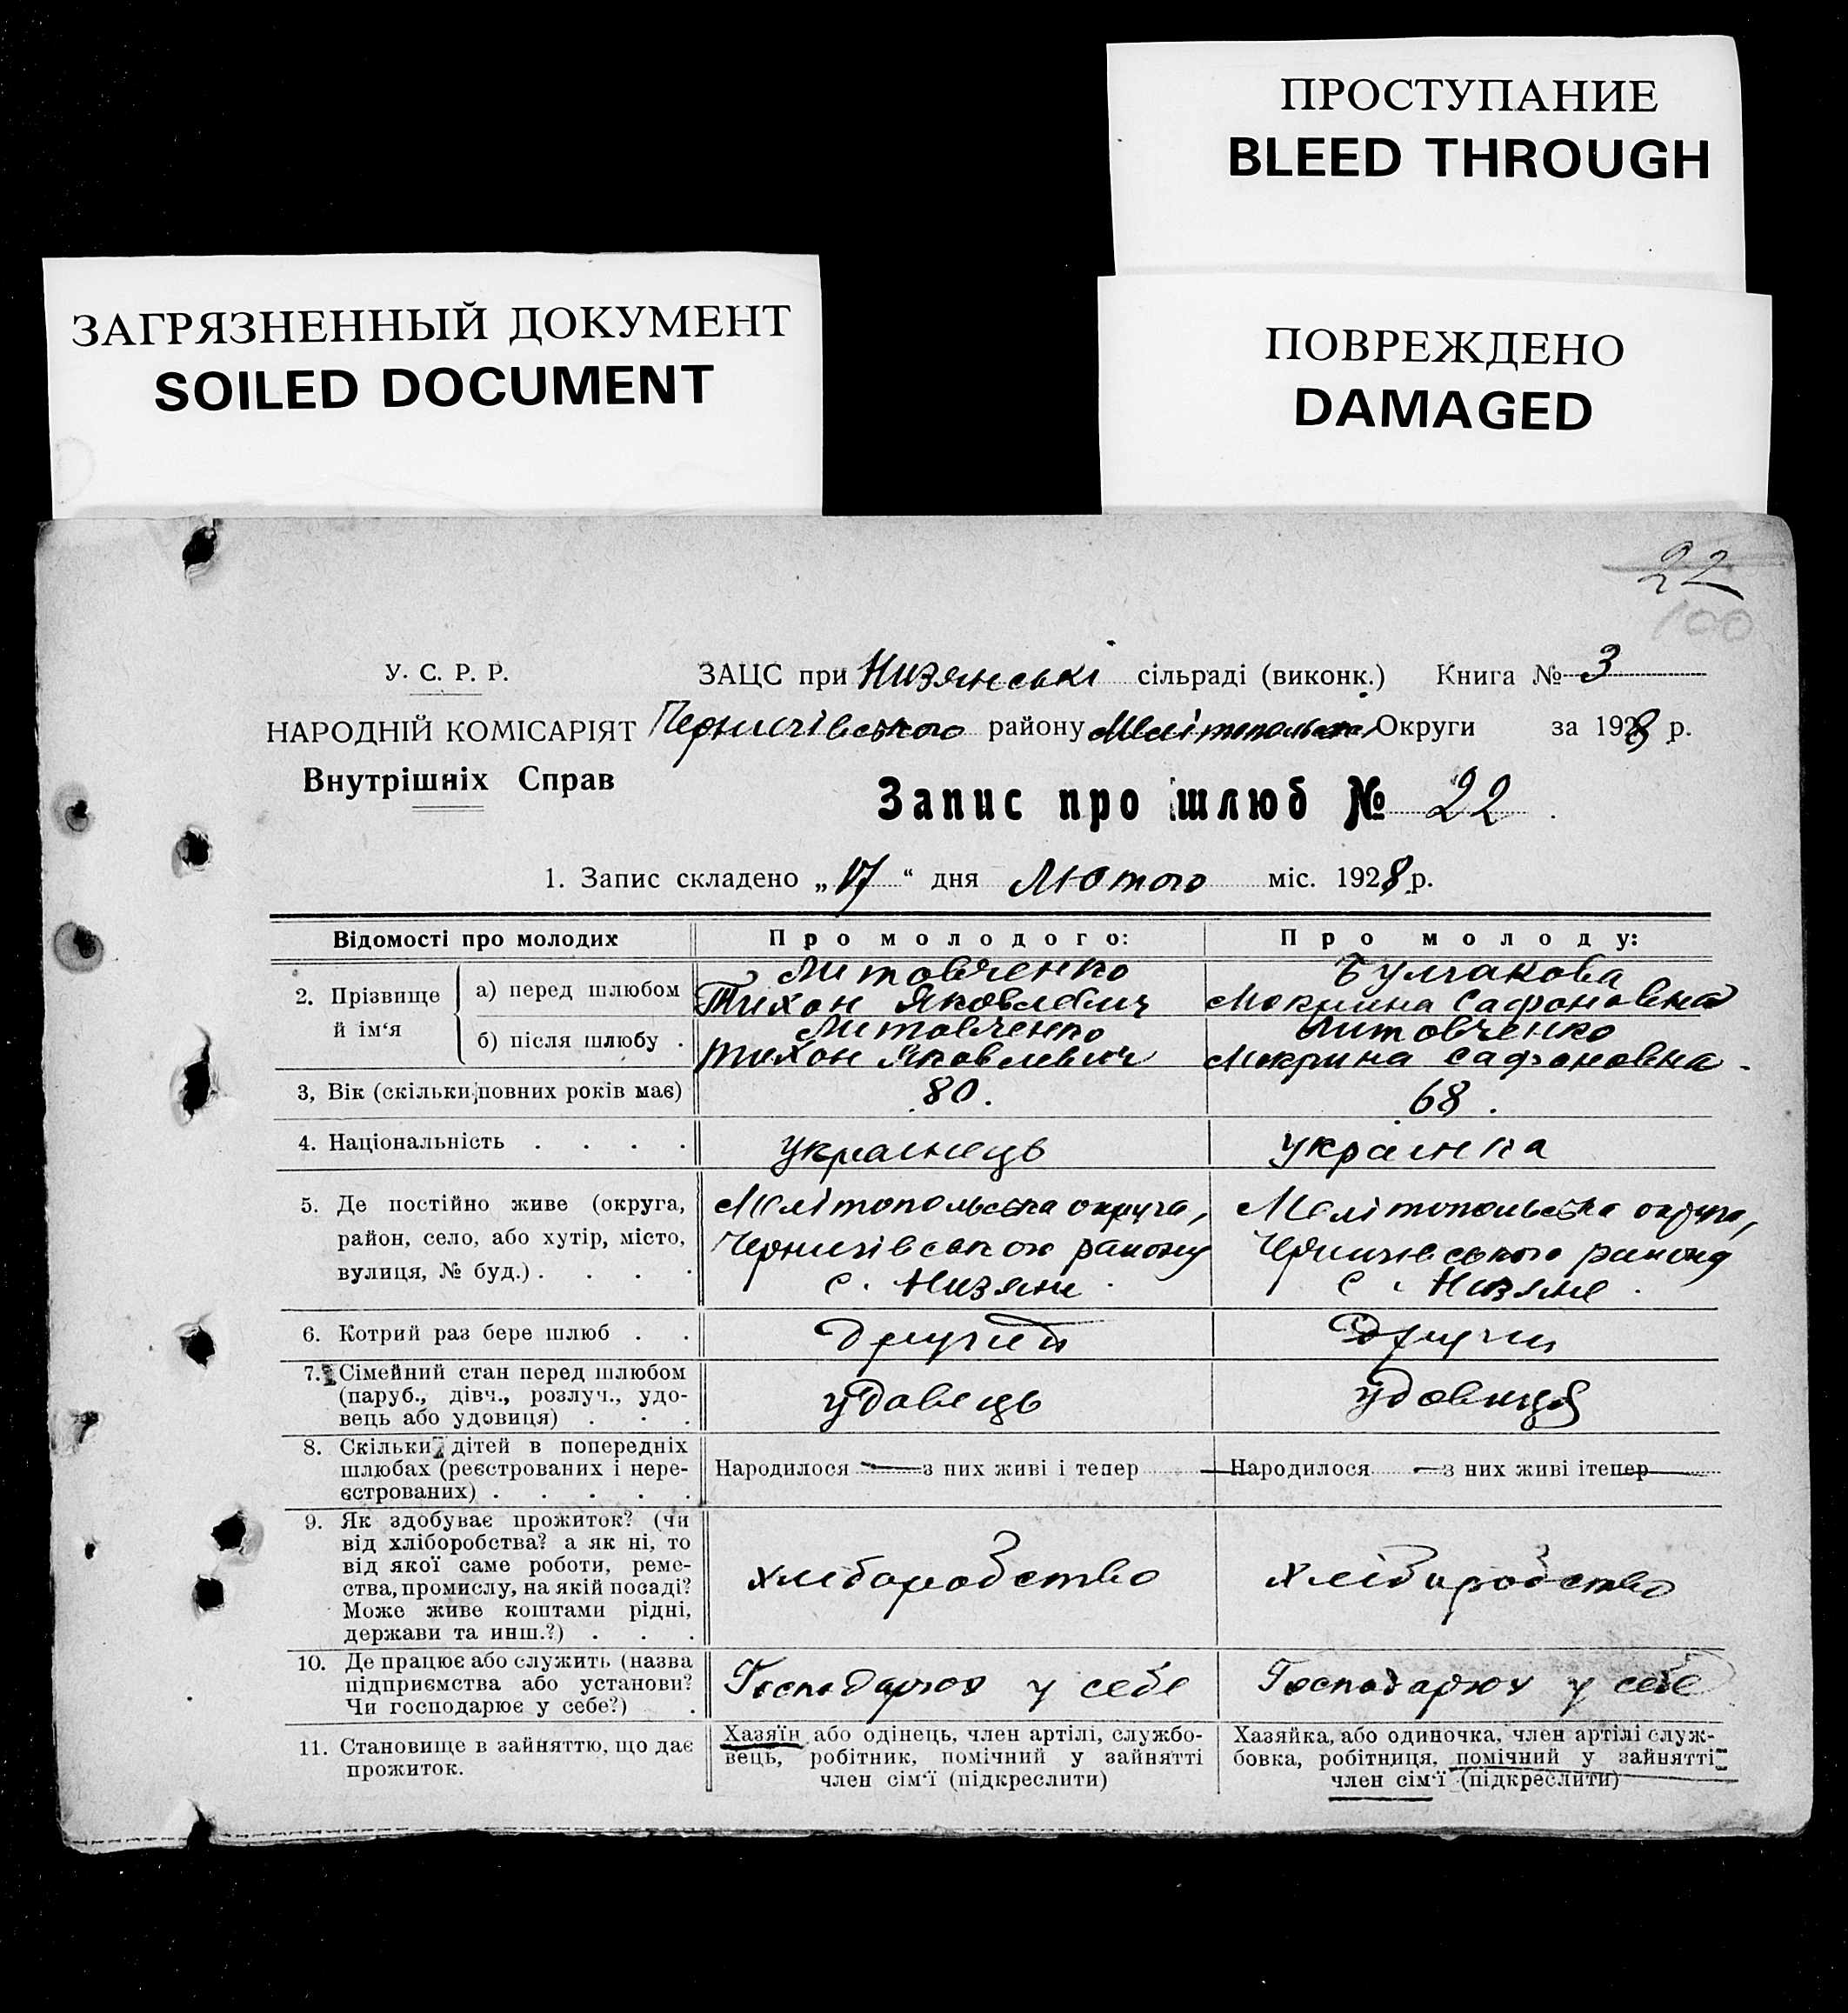 ПРОСТУПАНИЕ
BLEED THROUGH
ЗАГРЯЗНЕННЫЙ ДОКУМЕНТ
SOILED DOCUMENT
ПОВРЕЖДЕНО
DAMAGED
22
100
У. С. Р. Р.
ЗАЦС при Низянські сільраді (виконк.) Книга № 3
НАРОДНІЙ КОМІСАРІЯТ
Чернигівського району Мелітопольської Округи за 1928 р.
Внутрішніх Справ
Запис про шлюб № 22
1. Запис складено „17“ дня Лютого міс. 1928 р.
Відомості про молодих
Про молодого:
Про молоду:
2. Прізвище й ім‘я
а) перед шлюбом
Литовченко
Тихон Яковлевич
Булгакова
Мокрина Сафоновна
б) після шлюбу .
Литовченко
Тихон Яковлевич
Литовченко
Мокрина Сафоновна
3, Вік (скільки повних років має)
80.
68.
4. Національність . . . .
українець
українка
5. Де постійно живе (округа,
район, село, або хутір, місто,
вулиця, № буд.) . . . .
Мелітопольська округа,
Чернигівського району
с. Низяни
Мелітопольська округа,
Чернигівського району
с. Низяне
6. Котрий раз бере шлюб . .
другий
други
7. Сімейний стан перед шлюбом
(паруб., дівч., розлуч., удо-
вець або удовиця) . . .
удавець
удовиця
8. Скільки дітей в попередніх
шлюбах (реєстрованих і нере-
єстрованих) . . . . .
Народилося — з них живі і тепер —
Народилося — з них живі ітепер —
9. Як здобуває прожиток? (чи
від хліборобства? а як ні, то
від якої саме роботи, реме-
ства, промислу, на якій посаді?
Може живе коштами рідні,
держави та инш.?) . . .
хліборобство
хліборобство
10. Де працює або служить (назва
підприємства або установи?
Чи господарює у себе?) .
Господарюэ у себе
Господарюэ у себе
11. Становище в зайняттю, що дає
прожиток.
Хазяїн або одінець, член артілі, службо-
вець, робітник, помічний у зайнятті
член сім‘ї (підкреслити)
Хазяйка, або одиночка, член артілі служ-
бовка, робітниця, помічний у зайнятті
член сім‘ї (підкреслити)